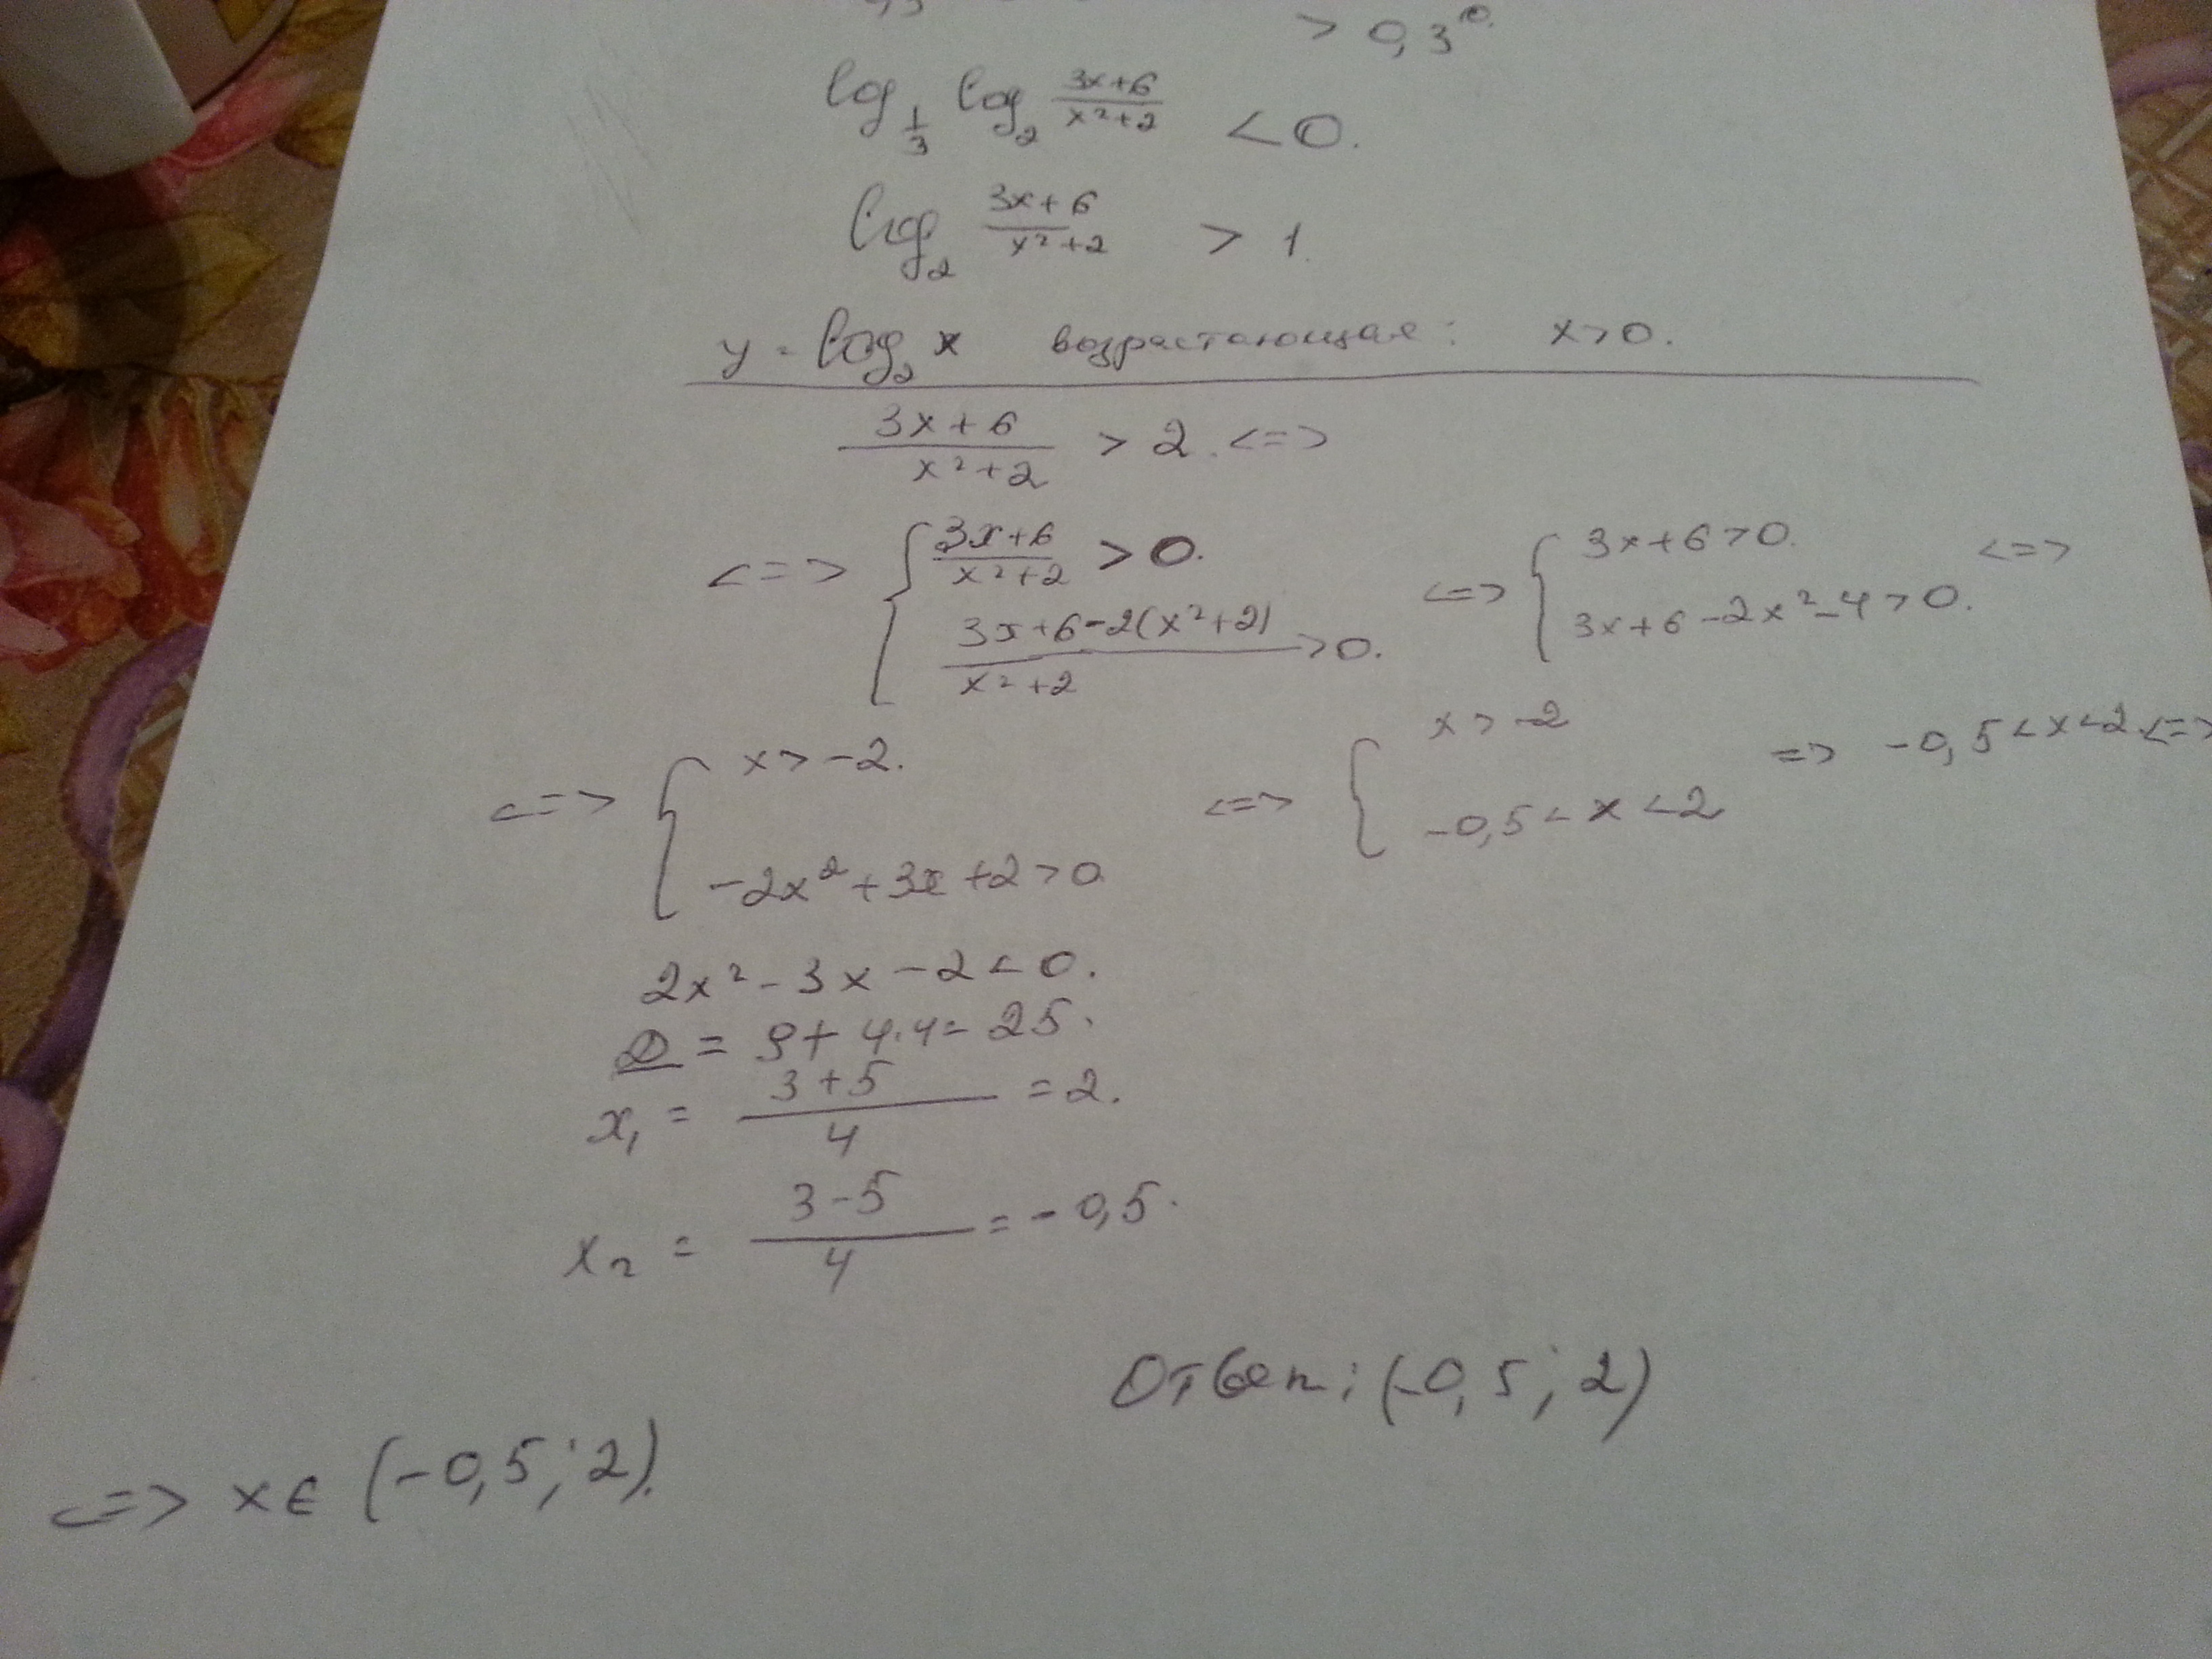 > 0,3⁰.
log_{1/3} log₂ (3x+6)/(x²+2) < 0.
log₂ (3x+6)/(x²+2) > 1.
y = log₂ x возрастающая: x>0.
(3x+6)/(x²+2) > 2. <=>
<=> { (3x+6)/(x²+2) > 0. (3x+6-2(x²+2))/(x²+2) >0. <=> { 3x+6>0. 3x+6-2x²-4>0. <=>
<=> { x>-2. -2x²+3x+2>0 <=> { x>-2 -0,5<x<2 => -0,5<x<2 <=>
2x²-3x-2<0.
D = 9+4·4=25.
x₁ = (3+5)/4 =2.
x₂ = (3-5)/4 =-0,5.
Ответ: (-0,5; 2)
<=> x∈(-0,5; 2).